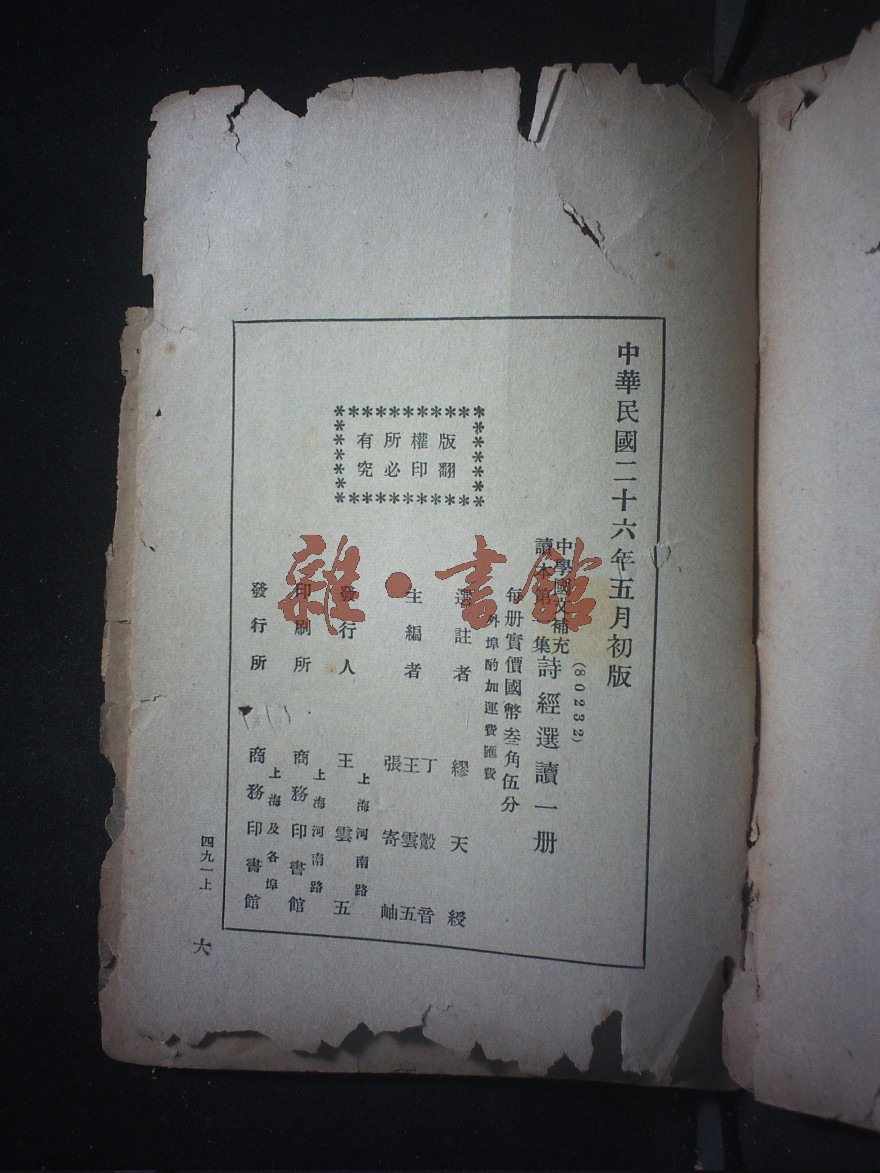 中華民國二十六年五月初版
(80232)
中學國文補充
讀本第一集
詩經選讀一册
每册實價國幣叁角伍分
外埠酌加運費匯費
選註者 繆天綬
主編者 丁㲄音
王雲五
張寄岫
發行人 王雲五
上海河南路
印刷所 商務印書館
上海河南路
發行所 商務印書館
上海及各埠
版權所有
翻印必究
四九一上
大
雜·書館